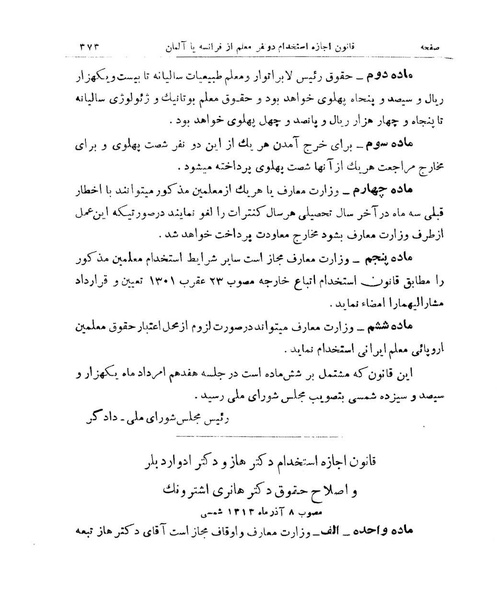 صفحه قانون اجازه استخدام دو نفر معلم از فرانسه یا آلمان ۳۷۳
ماده دوم ــ حقوق رئیس لابراتوار و معلم طبیعیات سالیانه تا بیست و یکهزار
ریال و سیصد و پنجاه پهلوی خواهد بود و حقوق معلم بوتانیک و ژئولوژی سالیانه
تا پنجاه و چهار هزار ریال و پانصد و چهل پهلوی خواهد بود .
ماده سوم ــ برای خرج آمدن هر یك از این دو نفر شصت پهلوی و برای
مخارج مراجعت هریك از آنها شصت پهلوی پرداخته میشود .
ماده چهارم ــ وزارت معارف یا هریك ازمعلمین مذکور میتوانند با اخطار
قبلی سه ماه در آخر سال تحصیلی هر سال کنترات را لغو نمایند درصورتیکه این عمل
ازطرف وزارت معارف بشود مخارج معاودت پرداخت خواهد شد .
ماده پنجم ــ وزارت معارف مجاز است سایر شرایط استخدام معلمین مذکور
را مطابق قانون استخدام اتباع خارجه مصوب ۲۳ عقرب ۱۳۰۱ تعیین و قرارداد
مشارالیهمارا امضاء نماید .
ماده ششم ــ وزارت معارف میتواند درصورت لزوم ازمحل اعتبار حقوق معلمین
اروپائی معلم ایرانی استخدام نماید .
این قانون که مشتمل بر شش ماده است در جلسه هفدهم امرداد ماه یکهزار و
سیصد و سیزده شمسی بتصویب مجلس شورای ملی رسید .
رئیس مجلس شورای ملی ـ دادگر
قانون اجازه استخدام دکتر هاز و دکتر ادوارد بلر
و اصلاح حقوق دکتر هانری اشترونك
مصوب ۸ آذر ماه ۱۳۱۳ شمسی
ماده واحده ــ الف ــ وزارت معارف واوقاف مجاز است آقای دکتر هاز تبعه